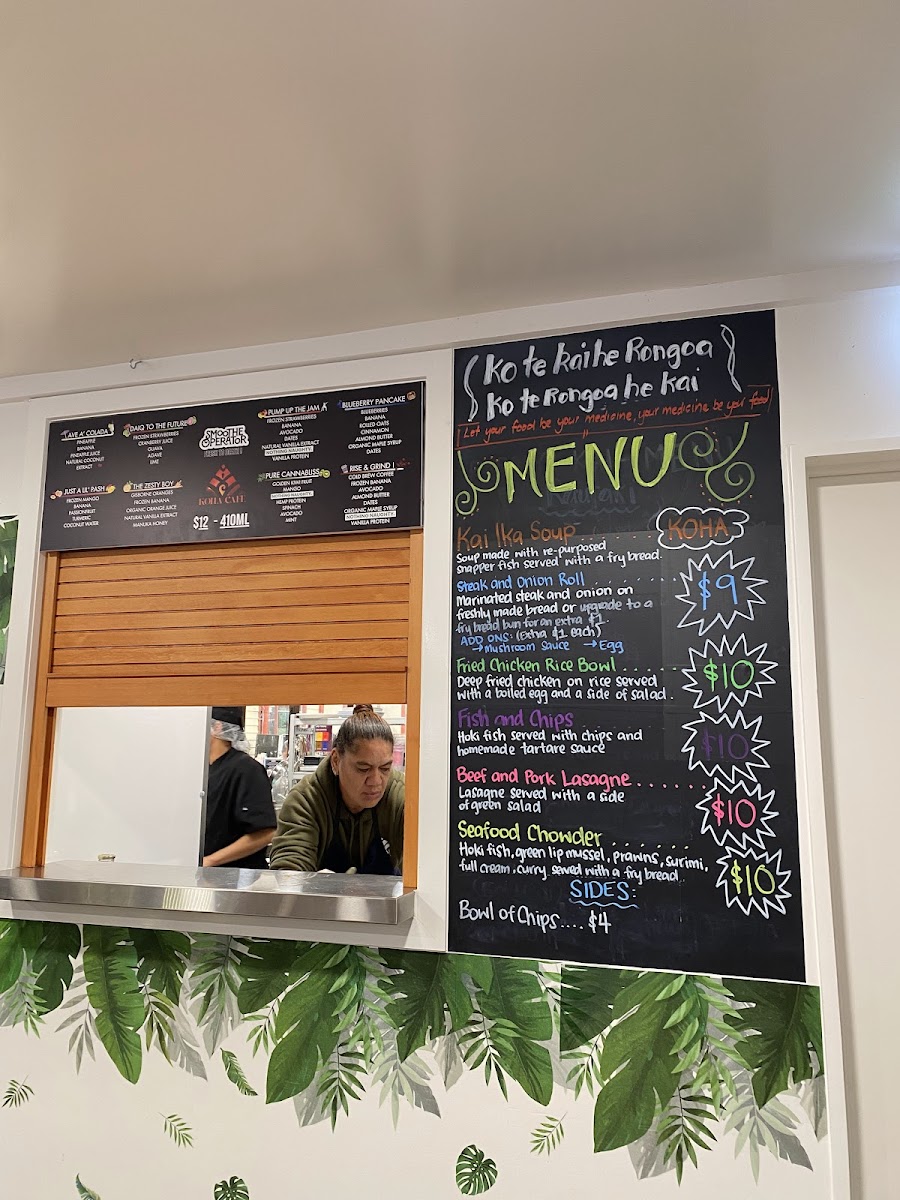 AVE A' COLADA
PINEAPPLE
BANANA
PINEAPPLE JUICE
NATURAL COCONUT
EXTRACT
DAIQ TO THE FUTURE
FROZEN STRAWBERRIES
CRANBERRY JUICE
GUAVA
AGAVE
LIME
SMOOTHE
OPERATOR
PUMP UP THE JAM
FROZEN STRAWBERRIES
BANANA
AVOCADO
DATES
NATURAL VANILLA EXTRACT
NOTHING NAUGHTY
VANILLA PROTEIN
BLUEBERRY PANCAKE
BLUEBERRIES
BANANA
ROLLED OATS
CINNAMON
ALMOND BUTTER
ORGANIC MAPLE SYRUP
DATES
JUST A LIL' PASH
FROZEN MANGO
BANANA
PASSIONFRUIT
TURMERIC
COCONUT WATER
THE ZESTY BOY
GISBORNE ORANGES
FROZEN BANANA
ORGANIC ORANGE JUICE
NATURAL VANILLA EXTRACT
MANUKA HONEY
KOHA CAFE
$12 - 410ML
PURE CANNABLISS
GOLDEN KIWI FRUIT
MANGO
NOTHING NAUGHTY
HEMP PROTEIN
SPINACH
AVOCADO
MINT
RISE & GRIND
COLD BREW COFFEE
FROZEN BANANA
AVOCADO
ALMOND BUTTER
DATES
ORGANIC MAPLE SYRUP
NOTHING NAUGHTY
VANILLA PROTEIN
Ko te kai he Rongoa
Ko te Rongoa he kai
"Let your food be your medicine, your medicine be your food"
MENU
Kai Ika Soup ........ KOHA
Soup made with re-purposed
snapper fish served with a fry bread.
Steak and Onion Roll ........ $9
Marinated steak and onion on
freshly made bread or upgrade to a
fry bread bun for an extra $1.
ADD ONS: (extra $1 each)
→mushroom sauce →Egg
Fried Chicken Rice Bowl ........ $10
Deep fried chicken on rice served
with a boiled egg and a side of salad.
Fish and Chips $10
Hoki fish served with chips and
homemade tartare sauce
Beef and Pork Lasagne ........ $10
Lasagne served with a side
of green salad
Seafood Chowder ........ $10
Hoki fish, green lip mussel, prawns, surimi,
full cream, curry served with a fry bread
SIDES:
Bowl of Chips .... $4